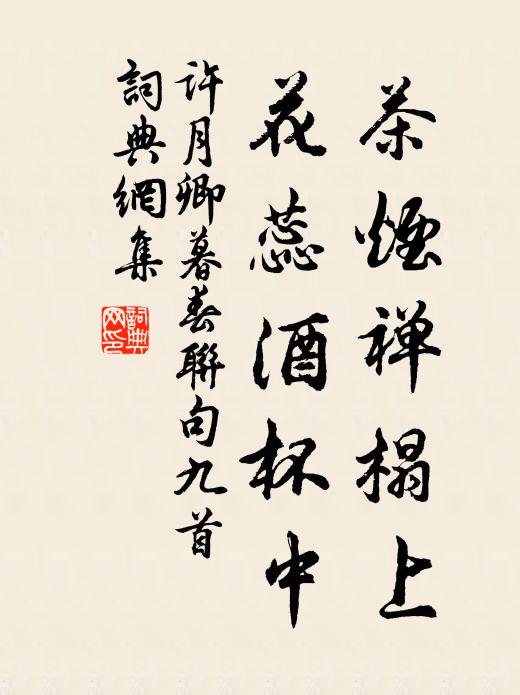 茶煙禅榻上
花蕊酒杯中
許月卿暮春聯句九首
詞典網集
詞典网印